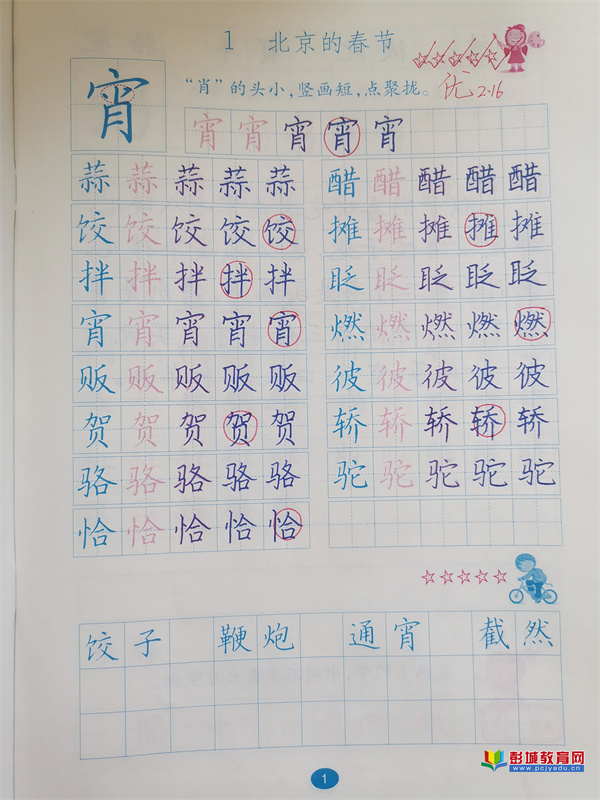 1 北京的春节
“肖”的头小,竖画短,点聚拢。 优 2.16
宵
宵 宵 宵 宵 宵
蒜 蒜 蒜 蒜 蒜 醋 醋 醋 醋 醋
饺 饺 饺 饺 饺 摊 摊 摊 摊 摊
拌 拌 拌 拌 拌 眨 眨 眨 眨 眨
宵 宵 宵 宵 宵 燃 燃 燃 燃 燃
贩 贩 贩 贩 贩 彼 彼 彼 彼 彼
贺 贺 贺 贺 贺 轿 轿 轿 轿 轿
骆 骆 骆 骆 骆 驼 驼 驼 驼 驼
恰 恰 恰 恰 恰
饺子 鞭炮 通宵 截然
1
彭城教育网
www.pcjyedu.cn